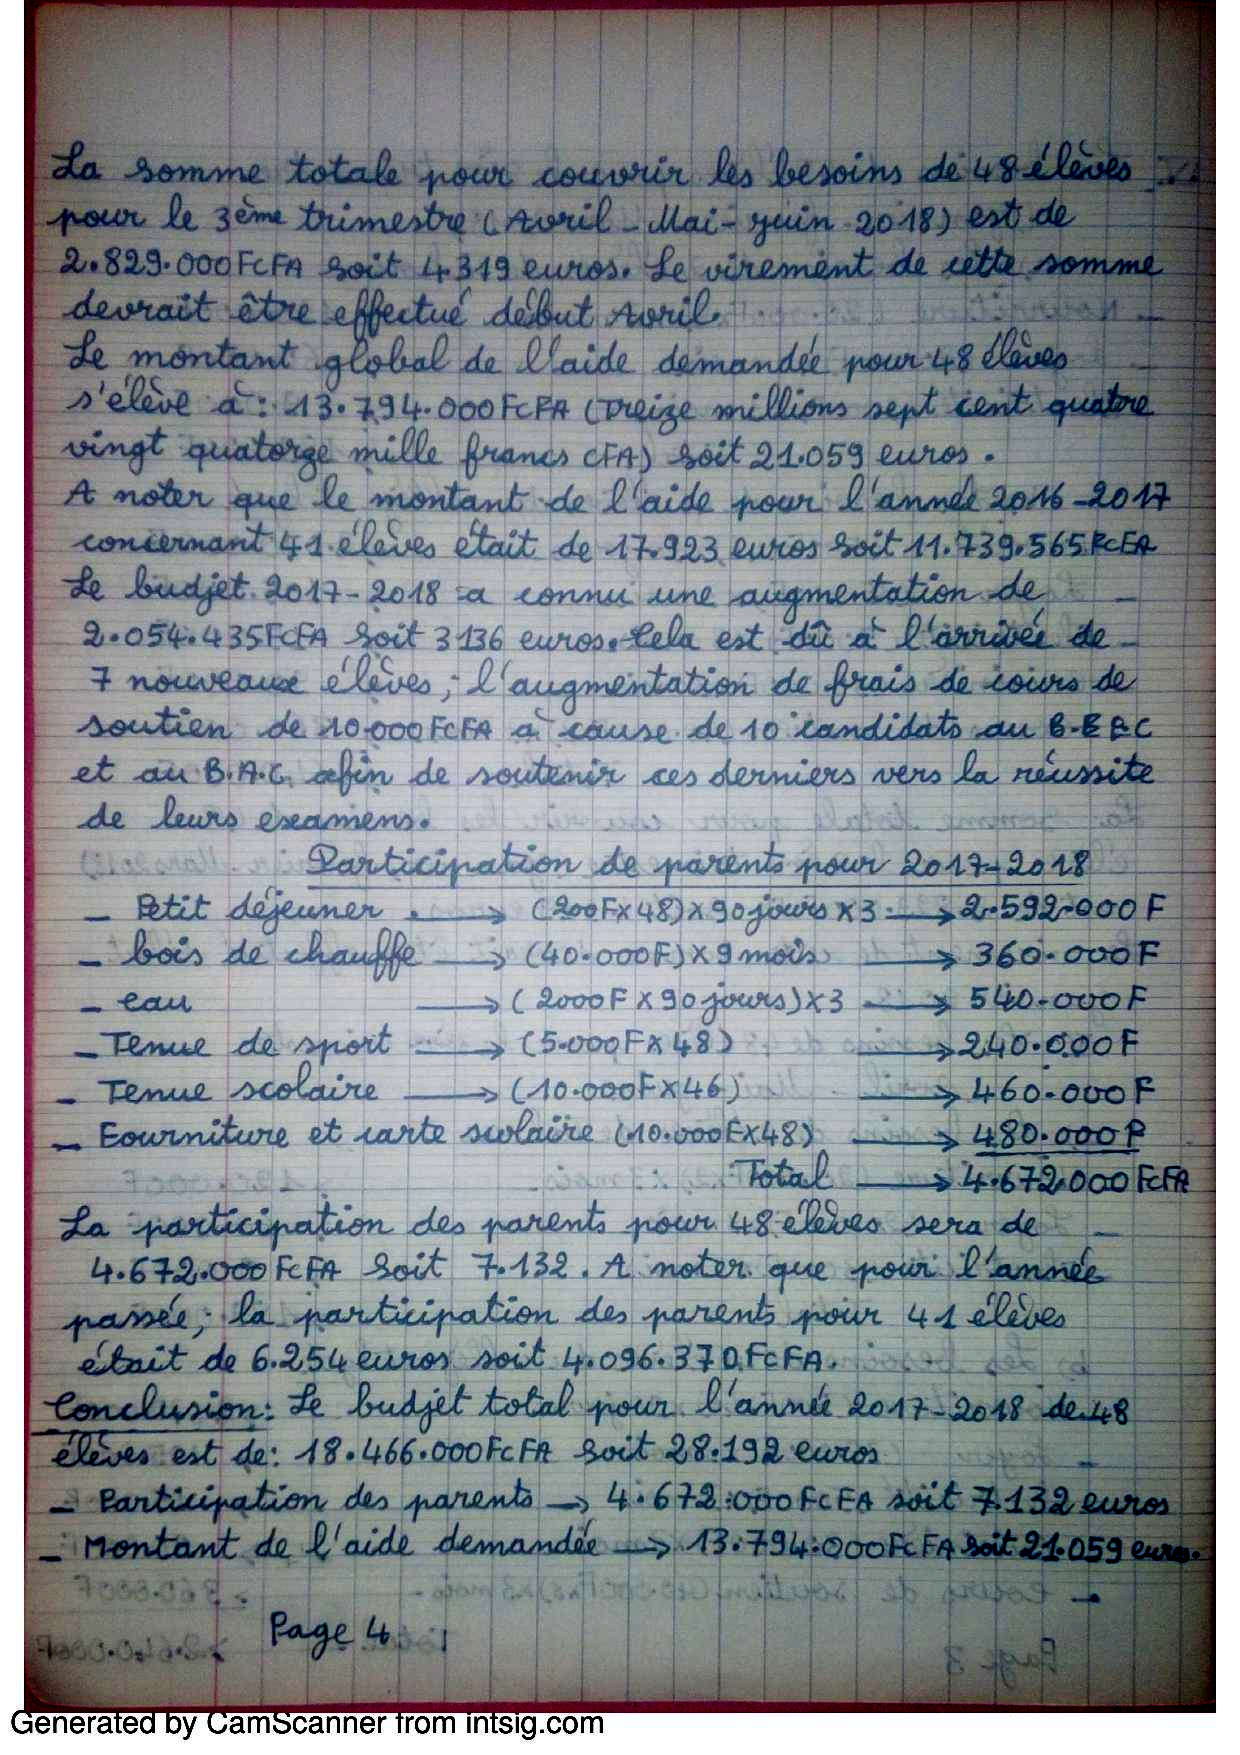 La somme totale pour couvrir les besoins de 48 élèves
pour le 3ème trimestre (Avril - Mai - Juin 2018) est de
2.829.000FcFA soit 4319 euros. Le virement de cette somme
devrait être effectué début Avril.
Le montant global de l'aide demandée pour 48 élèves
s'élève à : 13.794.000FcFA (Treize millions sept cent quatre
vingt quatorze mille francs CFA) soit 21.059 euros.
A noter que le montant de l'aide pour l'année 2016-2017
concernant 41 élèves était de 17.923 euros soit 11.739.565FcFA
Le budjet 2017-2018 a connu une augmentation de
2.054.435FcFA soit 3136 euros. Cela est dû à l'arrivée de
7 nouveaux élèves ; l'augmentation de frais de cours de
soutien de 10.000FcFA à cause de 10 candidats au B.E.P.C
et au B.A.C. afin de soutenir ces derniers vers la réussite
de leurs examens.
Participation de parents pour 2017-2018
- Petit déjeuner . → (200F×48)×90jours×3 → 2.592.000F
- bois de chauffe → (40.000F)×9mois → 360.000F
- eau → (2000F×90jours)×3 → 540.000F
- Tenue de sport → (5.000F×48) → 240.000F
- Tenue scolaire → (10.000F×46) → 460.000F
- Fourniture et carte scolaire (10.000F×48) → 480.000F
Total → 4.672.000FcFA
La participation des parents pour 48 élèves sera de
4.672.000FcFA soit 7.132. A noter que pour l'année
passée ; la participation des parents pour 41 élèves
était de 6.254 euros soit 4.096.370FcFA.
Conclusion : Le budjet total pour l'année 2017-2018 de 48
élèves est de : 18.466.000FcFA soit 28.192 euros
- Participation des parents → 4.672.000FcFA soit 7.132 euros
- Montant de l'aide demandée → 13.794.000FcFA soit 21.059 euros.
Page 4
Generated by CamScanner from intsig.com